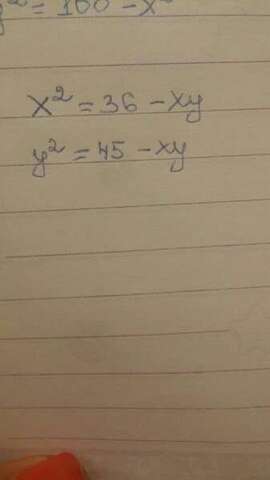 y² = 100 - x²
x² = 36 - xy
y² = 45 - xy